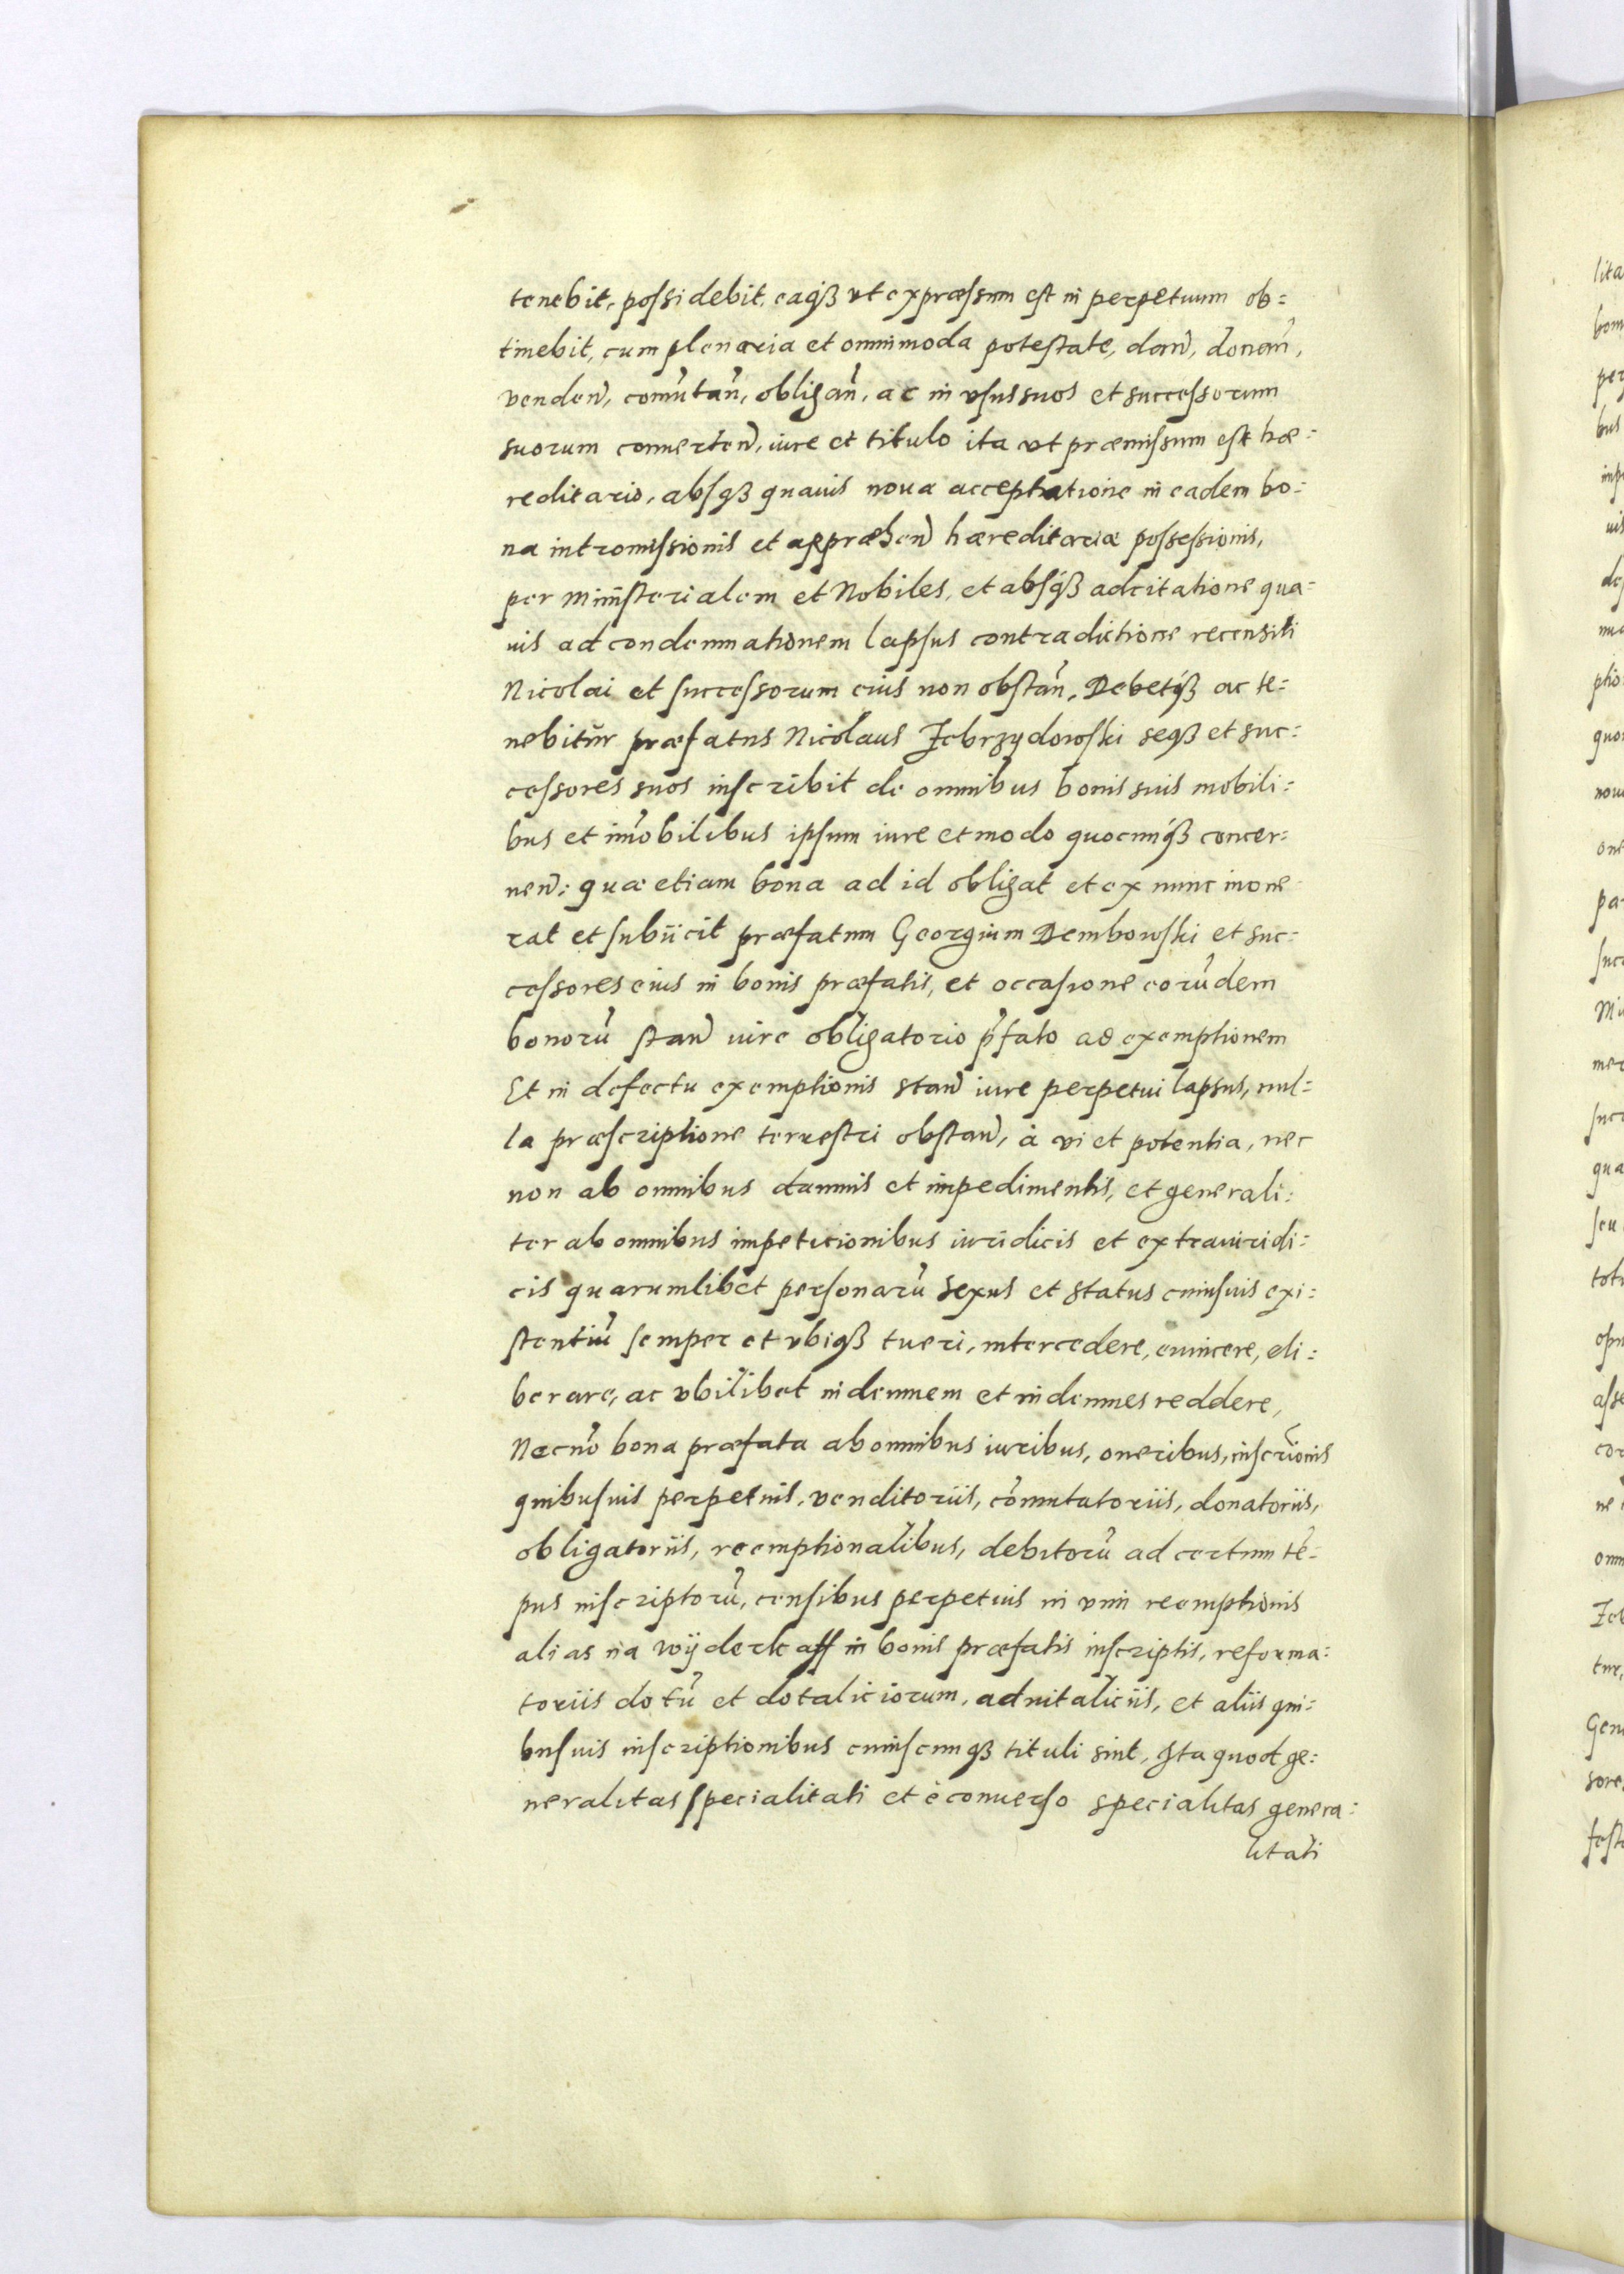 tenebit, possidebit, eaq́ꝫ vt expræssum est in perpetuum ob=
tinebit, cum plenaria et omnimoda potestate, dan̄, donan̄,
venden̄, com̄utan̄, obligan̄, ac in vsus suos et successorum
suorum conuerten̄, iure et titulo ita vt præmissum est hæ=
reditario, absqꝫ quauis noua acceptatione in eadem bo=
na intromissionis et appræhen̄ hæreditariæ possessionis,
per Ministerialem et Nobiles, et absq́ꝫ adcitatione qua=
uis ad condemnationem lapsus contradictione recensiti
Nicolai et successorum eius non obstan̄, Debetq́ꝫ ac te=
nebitur præfatus Nicolaus Zebrzydowski seqꝫ et suc=
cessores suos inscribit de omnibus bonis suis mobili=
bus et im̄obilibus ipsum iure et modo quocunq́ꝫ concer=
nen̄: quæ etiam bona ad id obligat et ex nunc inone
rat et subiicit præfatum Georgium Dembowski et suc=
cessores eius in bonis præfatis, et occasione eorūdem
bonorū stan̄ iure obligatorio p̄fato ad exemptionem
Et in defectu exemptionis stan̄ iure perpetui lapsus, nul=
la præscriptione terrestri obstan̄, à vi et potentia, nec
non ab omnibus damnis et impedimentis, et generali=
ter ab omnibus impeticionibus iuridicis et extraiuridi=
cis quarumlibet personarū sexus et status cuiusuis exi=
stentiū semper et vbiqꝫ tueri, intercedere, euincere, eli=
berare, ac vbilibet indemnem et indemnes reddere,
Necnō bona præfata ab omnibus iuribus, oneribus, inscriōnis
quibusuis perpetuis, venditoriis, cōmutatoriis, donatoriis,
obligatoriis, reemptionalibus, debitorū ad certum tē=
pus inscriptorū, censibus perpetuis in vim reemptionis
alias na wyderkaff in bonis præfatis inscriptis, reforma=
toriis dotū et dotaliciorum, aduitaliciis, et aliis qui=
busuis inscriptionibus cuiuscunqꝫ tituli sint, Ita quod ge=
neralitas specialitati et è conuerso specialitas genera=
litati